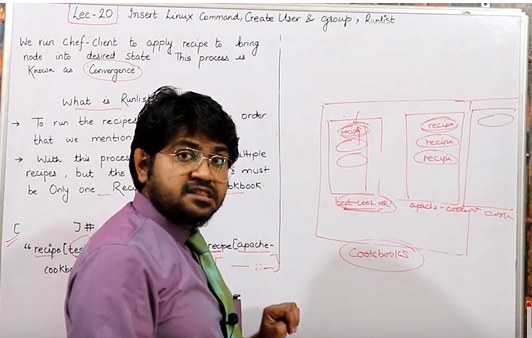 Lec-20 Insert Linux Command, Create User & group, Runlist
We run chef-client to apply recipe to bring
node into desired state. This process is
Known as 'Convergence'
What is Runlist
→ To run the recipes order
that we mention
→ With this process multiple
recipes, but the must
be Only one Reci cookbook.
[ ] #
"recipe[tes recipe[apache-
cookb
recipe
recipe
recipe
recipe
test-cook
apache-cookb
Cookbooks